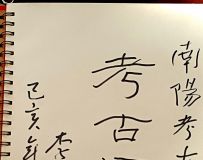 南陽考古
考古
李
己亥年